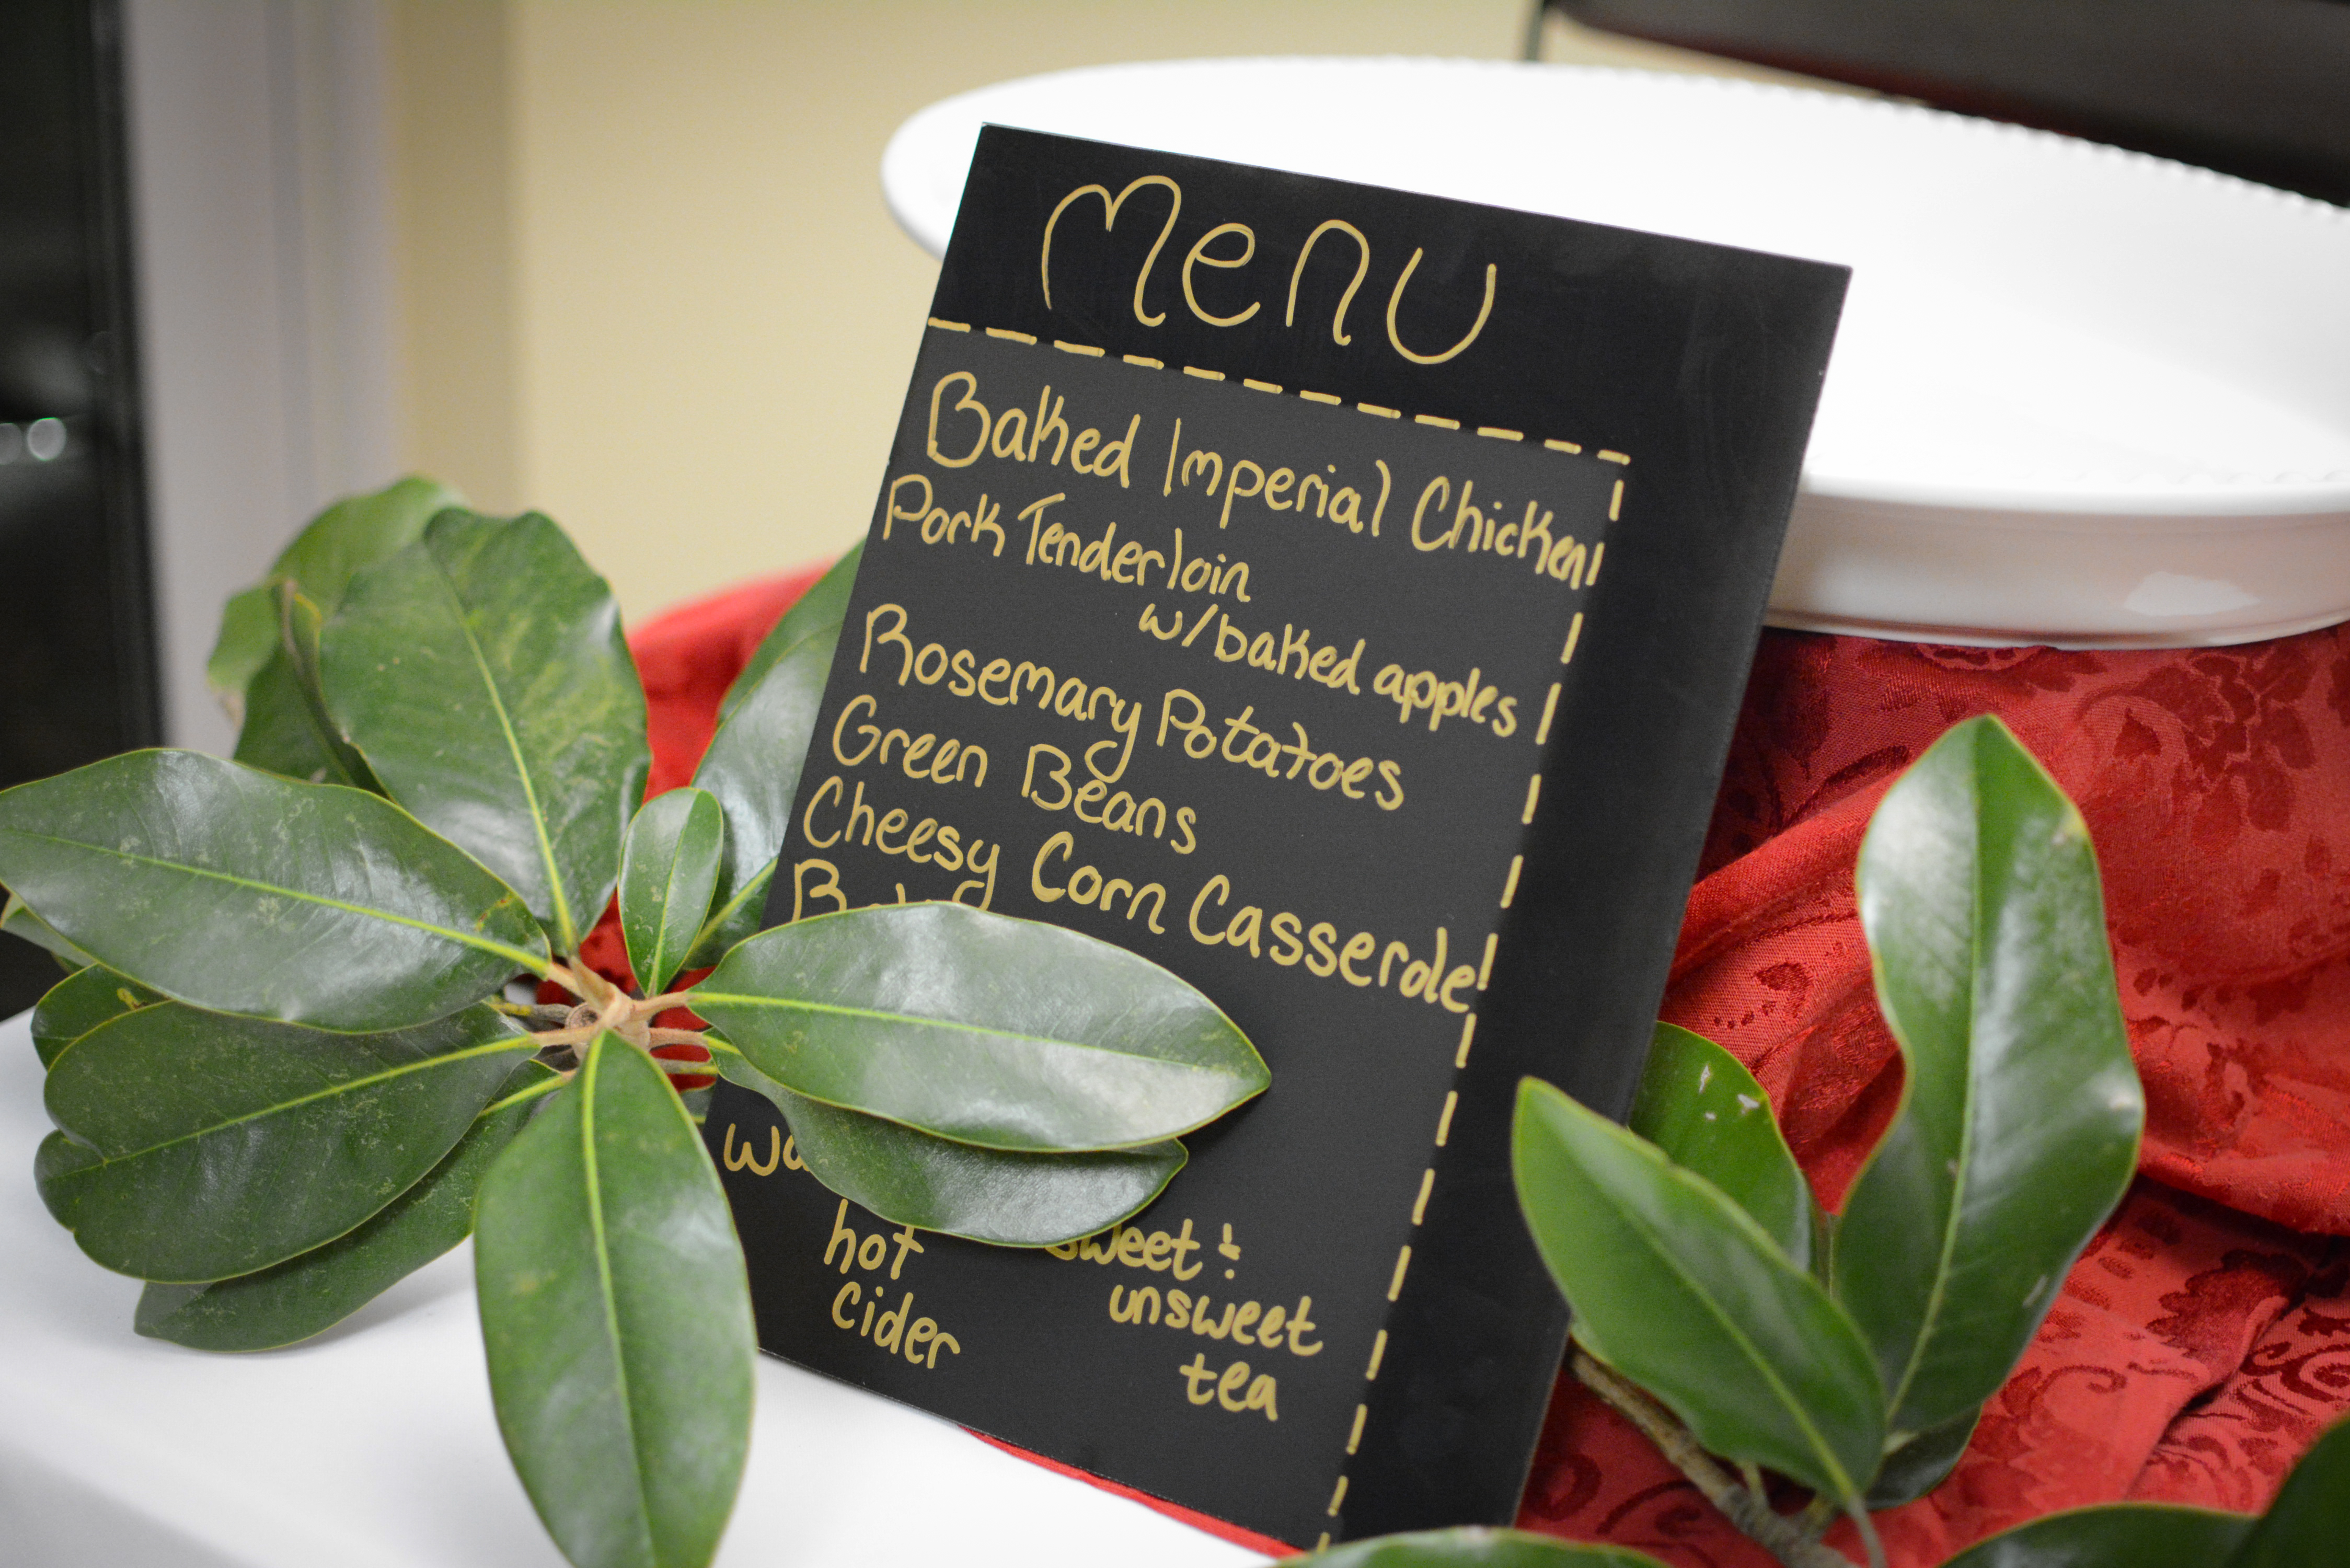 Menu
Baked Imperial Chicken
Pork Tenderloin
w/baked apples
Rosemary Potatoes
Green Beans
Cheesy Corn Casserole!
hot
cider
sweet &
unsweet
tea